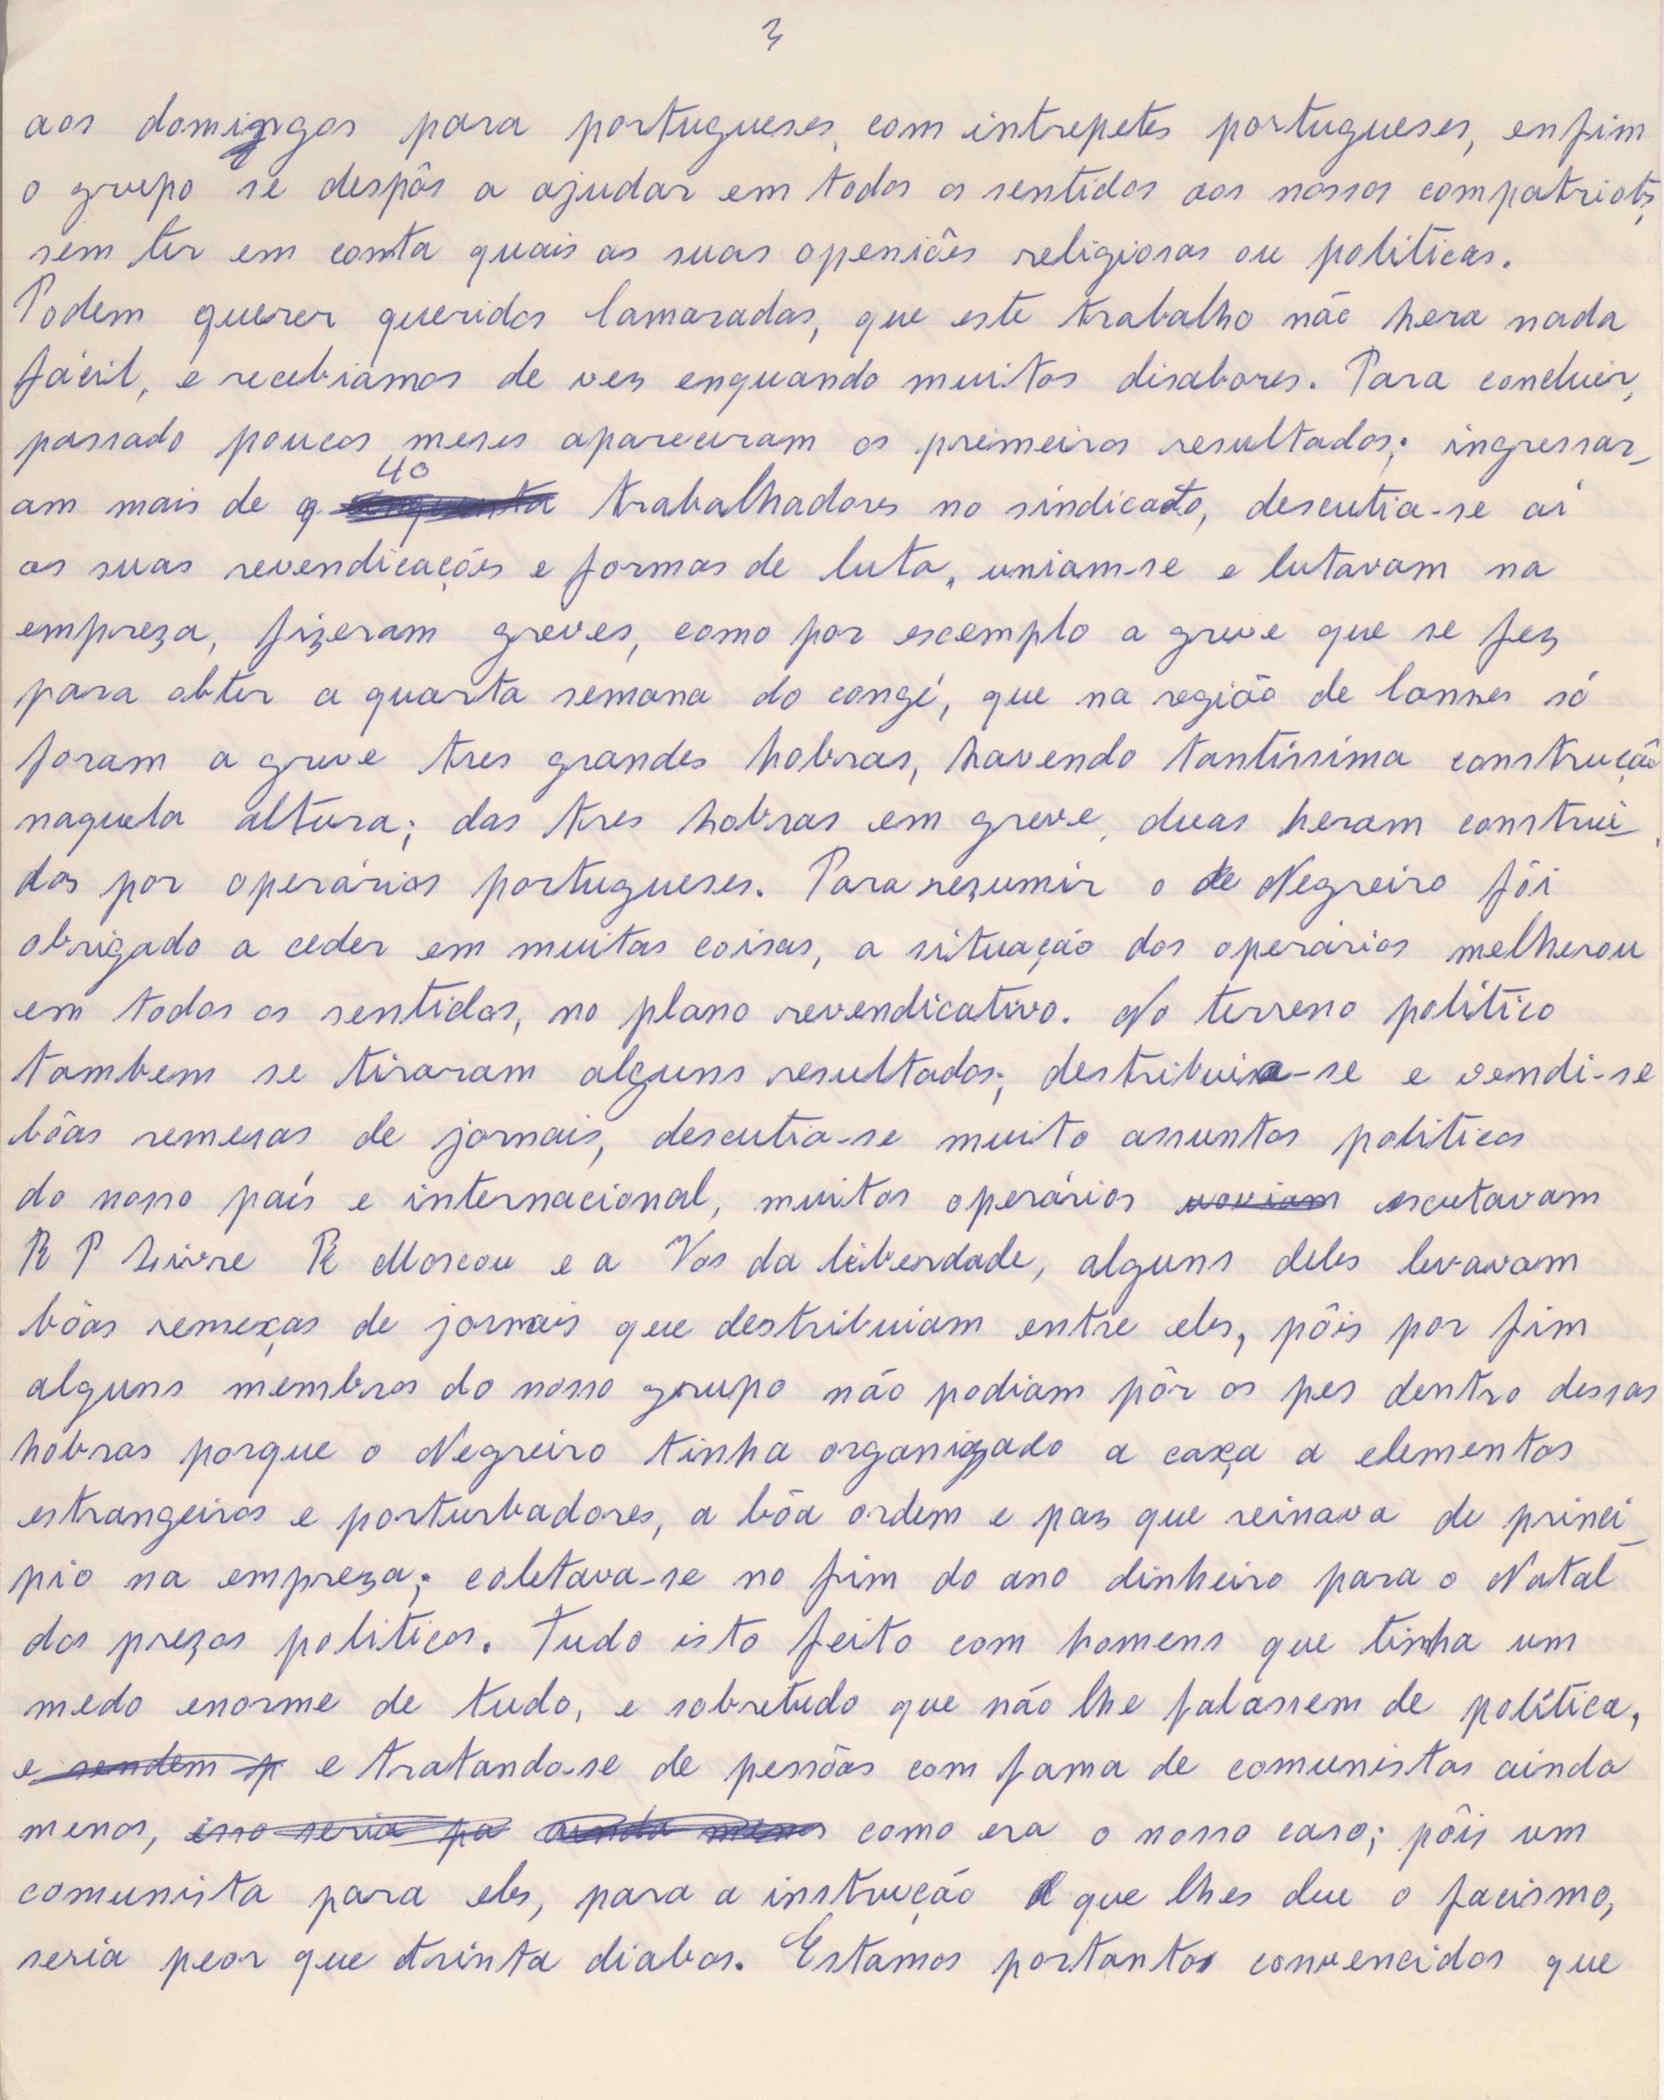 3
aos domingos para portugueses, com intrepetes portugueses, enfim
o grupo se despôs a ajudar em todos os sentidos aos nossos compatriots,
sem ter em conta quais as suas openiões religiosas ou politicas.
Podem querer queridos Camaradas, que este trabalho não hera nada
fácil, e recebiamos de vez enquando muitos disabores. Para concluir,
passado poucos meses apareceram os primeiros resultados; ingressar-
40
am mais de q cinquenta trabalhadores no sindicato, descutia-se aí
as suas revendicações e formas de luta, uniam-se e lutavam na
empreza, fizeram greves, como por escemplo a greve que se fez
para obter a quarta semana do congé, que na região de Cannes só
foram a greve tres grandes hobras, havendo tantíssima construção
naquela altura; das tres hobras em greve, duas heram construi-
das por operários portugueses. Para resumir o de Negreiro fôi
obrigado a ceder em muitas coisas, a situação dos operários melherou
em todos os sentidos, no plano revendicativo. No terreno político
tambem se tiraram alguns resultados; destribuia-se e vendi-se
bôas remesas de jornais, descutia-se muito assuntos politicos
do nosso país e internacional, muitos operários ouviam escutavam
R P Livre R Moscou e a Vos da liberdade, alguns deles levavam
bôas remeças de jornais que destribuiam entre eles, pôis por fim
alguns membros do nosso grupo não podiam pôr os pes dentro dessas
hobras porque o Negreiro tinha organizado a caça a elementos
estrangeiros e porturbadores, a bôa ordem e paz que reinava de princi-
pio na empreza; coletava-se no fim do ano dinheiro para o Natal
dos prezos politicos. Tudo isto feito com homens que tinha um
medo enorme de tudo, e sobretudo que não lhe falassem de política,
e sendem p e tratando-se de pessôas com fama de comunistas ainda
menos, isso seria pa ainda menos como era o nosso caso; pôis um
comunista para eles, para a instrução que lhes deu o facismo,
seria peor que trinta diabos. Estamos portantos convencidos que